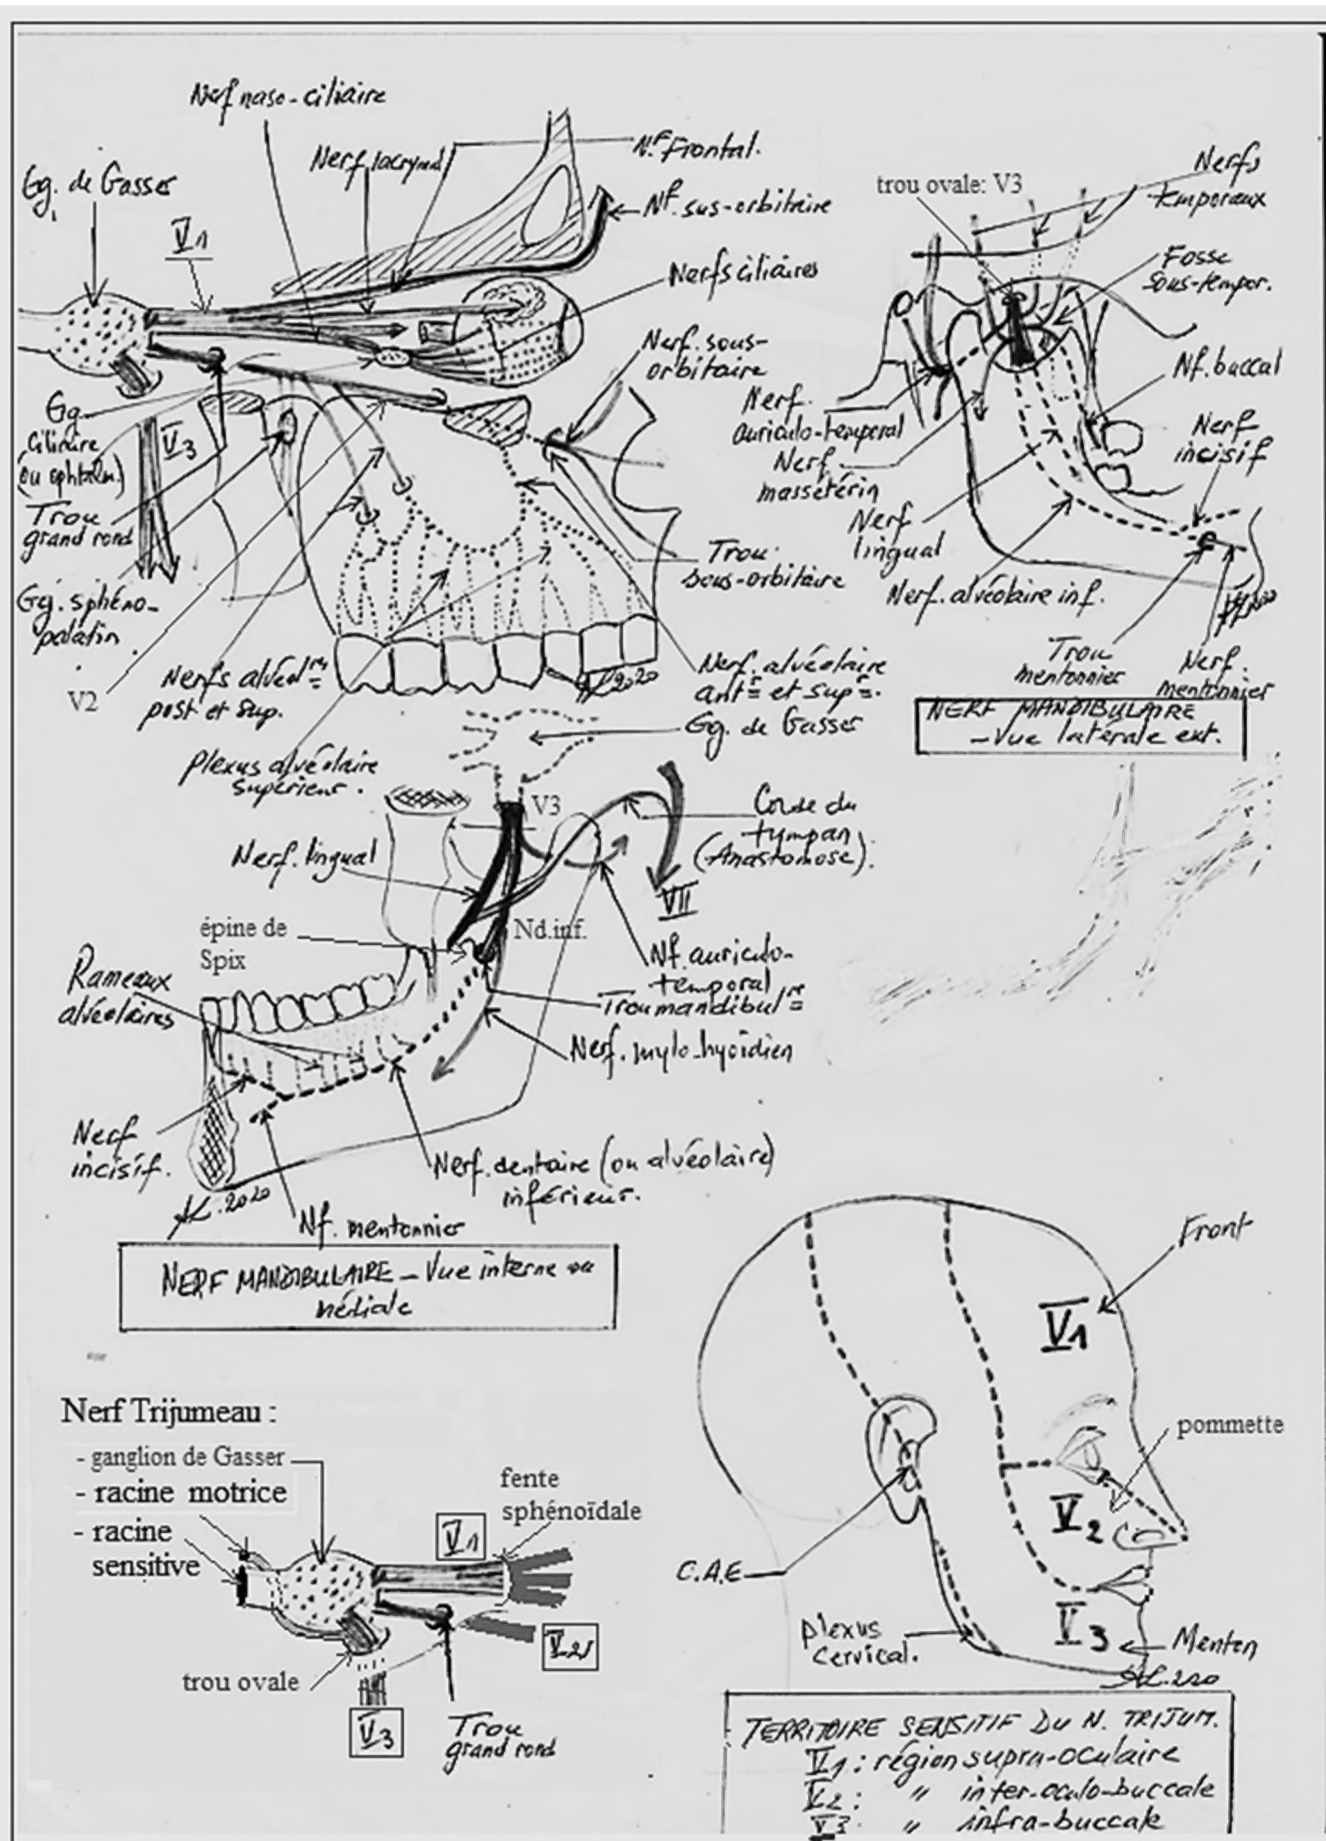 Nerf naso-ciliaire
Nerf lacrymal
Nf. Frontal.
Gg. de Gasser
V1
Nf. sus-orbitaire
Nerfs ciliaires
Nerf. sous-
orbitaire
Gg.
ciliaire
(ou ophtalm.)
V3
Trou
grand rond
Gg. sphéno-
palatin
V2
Nerfs alvéolres
post et sup.
Plexus alvéolaire
supérieur.
Trou
sous-orbitaire
Nerf. alvéolaire
antr et supr.
trou ovale: V3
Nerfs
temporaux
Fosse
sous-tempor.
Nf. buccal
Nerf.
auriculo-temporal
Nerf
massétérin
Nerf
incisif
Nerf
lingual
Nerf. alvéolaire inf.
Trou
mentonnier
Nerf.
mentonnier
NERF MANDIBULAIRE
- Vue latérale ext.
Gg. de Gasser
V3
Corde du
tympan
(Anastomose).
Nerf. lingual
VII
épine de
Spix
Nd.inf.
Nf. auriculo-
temporal
Trou mandibulre
Nerf. mylo-hyoïdien
Rameaux
alvéolaires
Nerf
incisif.
AL. 2020
Nf. mentonnier
Nerf. dentaire (ou alvéolaire)
inférieur.
NERF MANDIBULAIRE - Vue interne ou
médiale
Nerf Trijumeau :
- ganglion de Gasser
- racine motrice
- racine
sensitive
V1
fente
sphénoïdale
V2
trou ovale
V3
Trou
grand rond
Front
V1
pommette
V2
C.A.E
V3
plexus
cervical.
Menton
TERRITOIRE SENSITIF DU N. TRIJUM.
V1 : région supra-oculaire
V2 : " inter-oculo-buccale
V3 : " infra-buccale